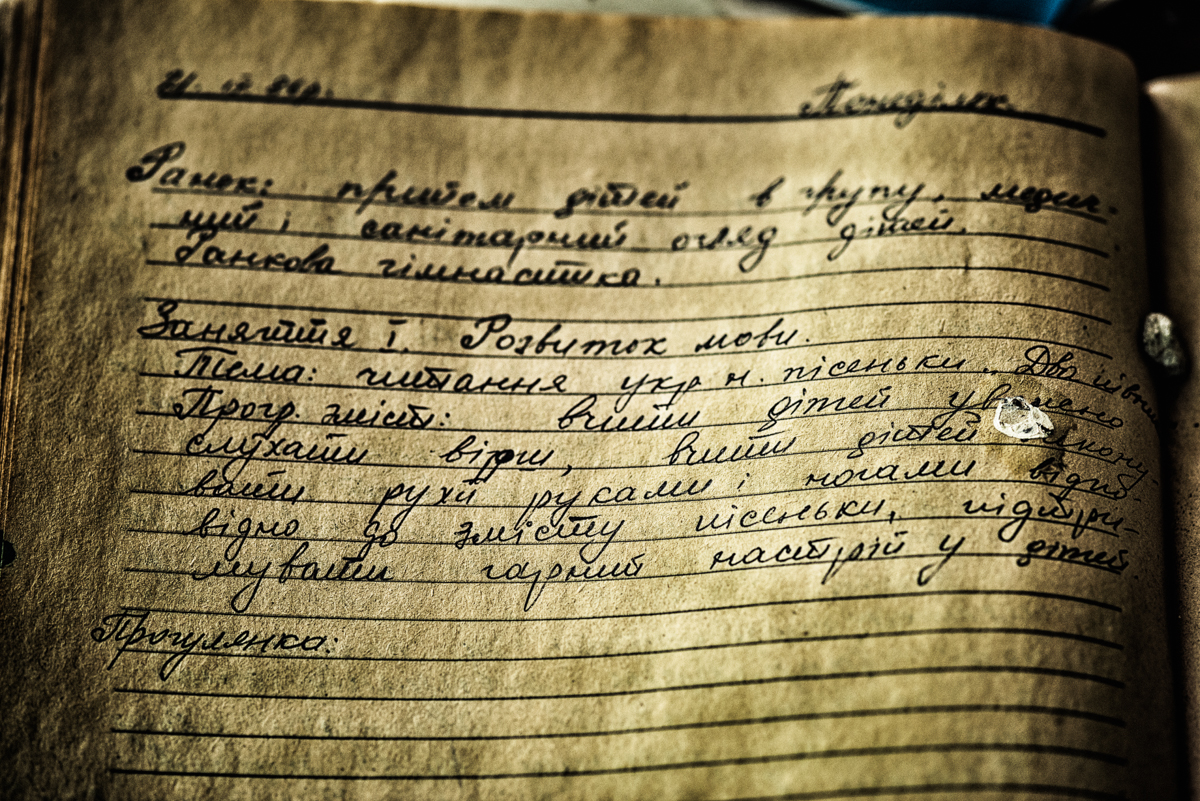 21. 04 86р. Понеділок
Ранок: прийом дітей в групу, медич-
ний і санітарний огляд дітей.
Ранкова гімнастика.
Заняття І. Розвиток мови.
Тема: читання укр н. пісеньки „Два півники
Прогр. зміст: вчити дітей уважно
слухати вірш, вчити дітей викону-
вати рухи руками і ногами відпо-
відно до змісту пісеньки, підтри-
мувати гарний настрій у дітей
Прогулянка: